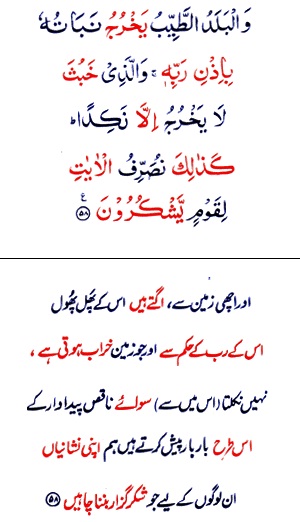 وَالْبَلَدُ الطَّيِّبُ يَخْرُجُ نَبَاتُهٗ
بِاِذْنِ رَبِّهٖ ۚ وَالَّذِیْ خَبُثَ
لَا یَخْرُجُ اِلَّا نَكِدًا ؕ
كَذٰلِكَ نُصَرِّفُ الْاٰیٰتِ
لِقَوْمٍ یَّشْكُرُوْنَ ۧ ﴿۵۸﴾
اور اچھی زمین سے، اگتے ہیں اس کے پھل پھول
اس کے رب کے حکم سے اور جو زمین خراب ہوتی ہے،
نہیں نکلتا (اس میں سے) سوائے ناقص پیداوار کے
اس طرح بار بار پیش کرتے ہیں ہم اپنی نشانیاں
ان لوگوں کے لیے جو شکر گزار بننا چاہیں ﴿۵۸﴾